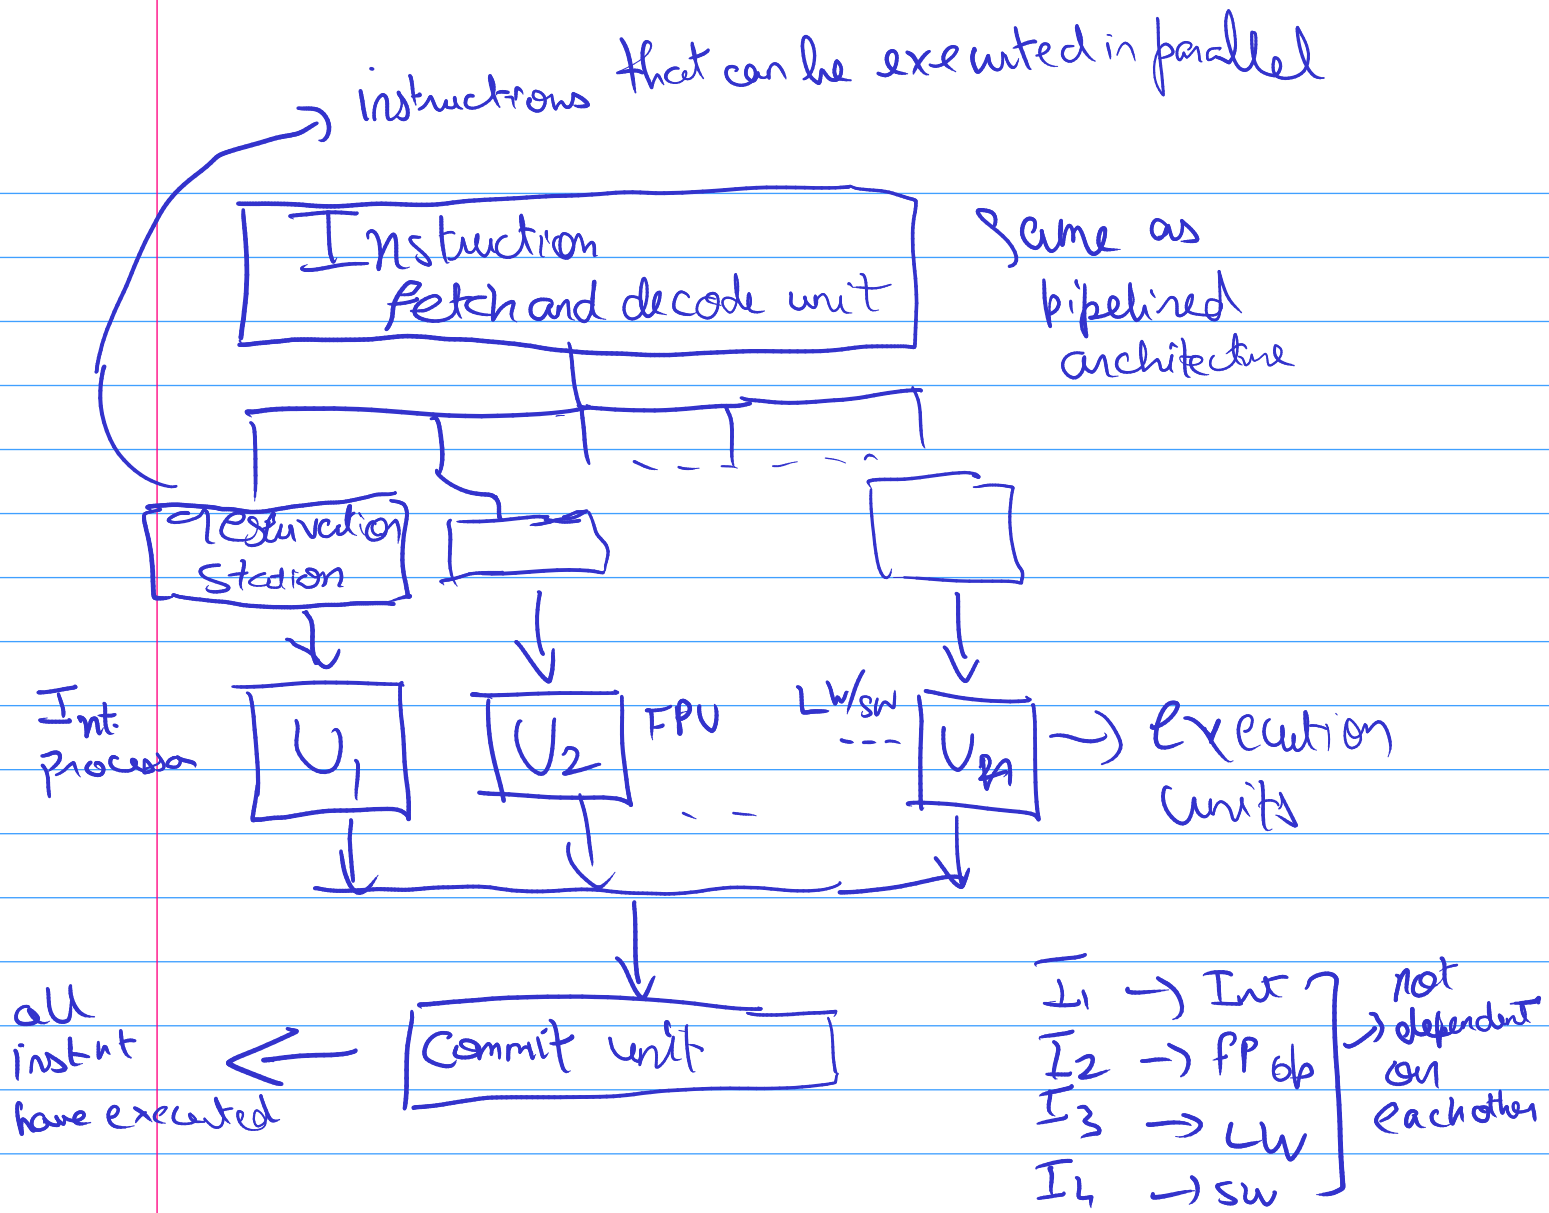 instructions that can be executed in parallel
Instruction
fetch and decode unit
same as
pipelined
architecture
reservation
station
Int.
processor
U1
U2
FPU
LW/SW
---
Un
→ execution
units
commit unit
all
instnt
have executed
I1 → Int
I2 → FP op
I3 → LW
I4 → SW
not
dependent
on
each other